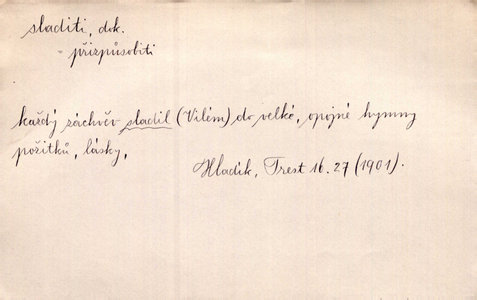 sladiti, dok.
- přizpůsobiti
každý záchvěv sladil (Vilém) do velké, opojné hymny
požitků, lásky,
Hladík, Trest 16. 27 (1901).